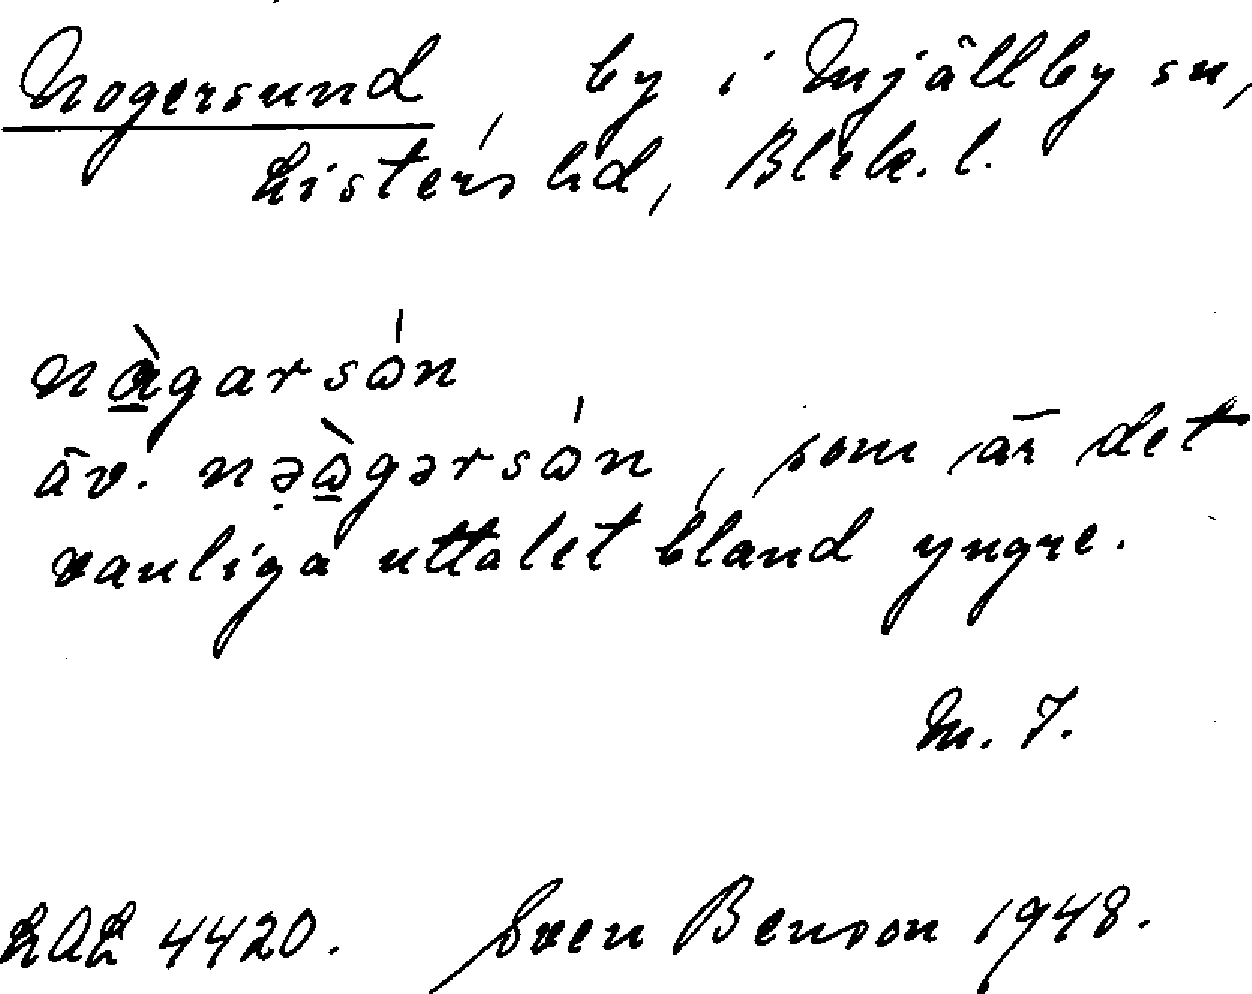 Nogersund, by i Mjällby sn,
Listers hd, Blek. l.
nὰ̱garsώn
äv. nə̣ὼ̱gərsώn, som är det
vanliga uttalet bland yngre.
M. 7.
LAL 4420. Sven Benson 1948.